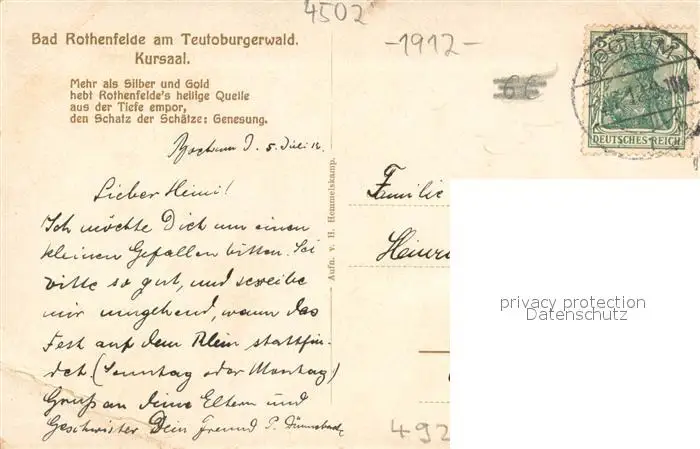 4502
Bad Rothenfelde am Teutoburgerwald.
Kursaal.
-1912-
Mehr als Silber und Gold
hebt Rothenfelde's heilige Quelle
aus der Tiefe empor,
den Schatz der Schätze: Genesung.
6 €
BOCHUM
DEUTSCHES REICH
Bochum d. 5. Juli 12.
Lieber Heini!
Ich möchte Dich um einen
kleinen Gefallen bitten. Sei
bitte so gut, und schreibe
mir umgehend, wann das
Fest auf dem Klein stattfin-
det. (Sonntag oder Montag)
Gruß an deine Eltern und
Geschwister Dein Freund P.
Aufn. v. H. Hemmelskamp.
Familie
Heinr
privacy protection
Datenschutz
492